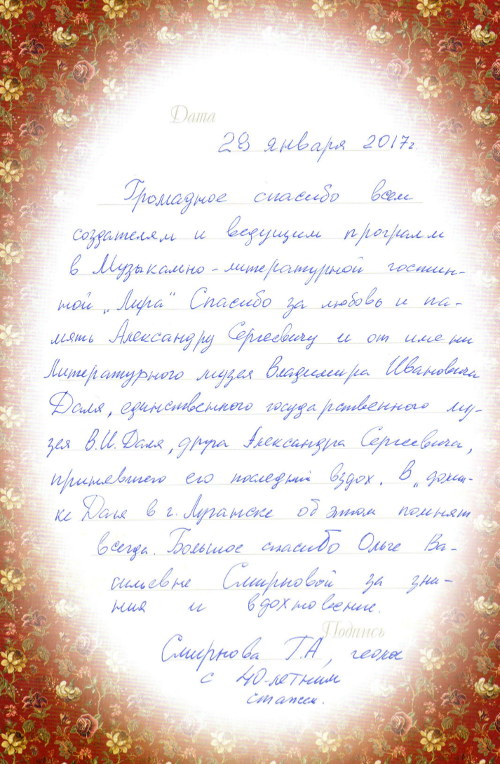 Дата
29 января 2017г
Громадное спасибо всем
создателям и ведущим программ
в Музыкально-литературной гостин-
ной „Лира“ Спасибо за любовь и па-
мять Александру Сергеевичу и от имени
Литературного музея Владимира Ивановича
Даля, единственного государственного му-
зея В.И.Даля, друга Александра Сергеевича,
принявшего его последний вздох. В „доми-
ке Даля в г. Луганске об этом помнят
всегда. Большое спасибо Ольге Ва-
сильевне Смирновой за зна-
ния и вдохновение.
Подпись
Смирнова Г.А, геолог
с 40-летним
стажем.